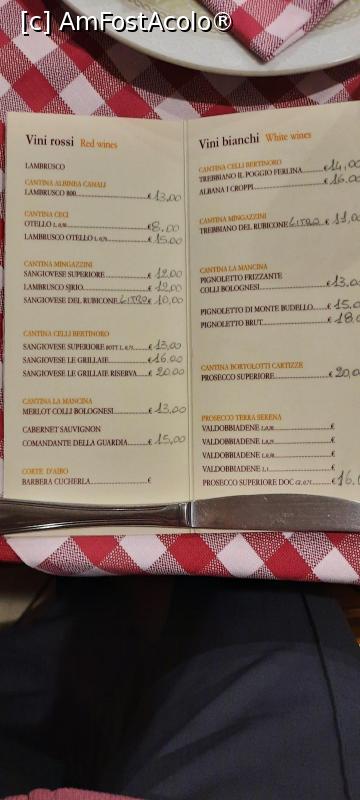 [c] AmFostAcolo®
Vini rossi Red wines
LAMBRUSCO
CANTINA ALBINEA CANALI
LAMBRUSCO 800 € 13,00
CANTINA CECI
OTELLO L 0,50 € 8,00
LAMBRUSCO OTELLO L 0,75 € 15,00
CANTINA MINGAZZINI
SANGIOVESE SUPERIORE € 12,00
LAMBRUSCO € 12,00
SANGIOVESE DEL RUBICONE LITRO € 10,00
CANTINA CELLI BERTINORO
SANGIOVESE SUPERIORE BOTT L. 0,75 € 13,00
SANGIOVESE LE GRILLAIE € 16,00
SANGIOVESE LE GRILLAIE RISERVA € 20,00
CANTINA LA MANCINA
MERLOT COLLI BOLOGNESI € 13,00
CABERNET SAUVIGNON
COMANDANTE DELLA GUARDIA € 15,00
CORTE D'AIBO
BARBERA CUCHERLA €
Vini bianchi White wines
CANTINA CELLI BERTINORO
TREBBIANO IL POGGIO FERLINA € 14,00
ALBANA I CROPPI € 16,00
CANTINA MINGAZZINI
TREBBIANO DEL RUBICONE LITRO € 11,0
CANTINA LA MANCINA
PIGNOLETTO FRIZZANTE
COLLI BOLOGNESI € 13,0
PIGNOLETTO DI MONTE BUDELLO € 15,0
PIGNOLETTO BRUT € 18,0
CANTINA BORTOLOTTI CARTIZZE
PROSECCO SUPERIORE € 20,0
PROSECCO TERRA SERENA
VALDOBBIADENE €
VALDOBBIADENE €
VALDOBBIADENE €
VALDOBBIADENE €
PROSECCO SUPERIORE DOC Cl. 0,75 € 16,0